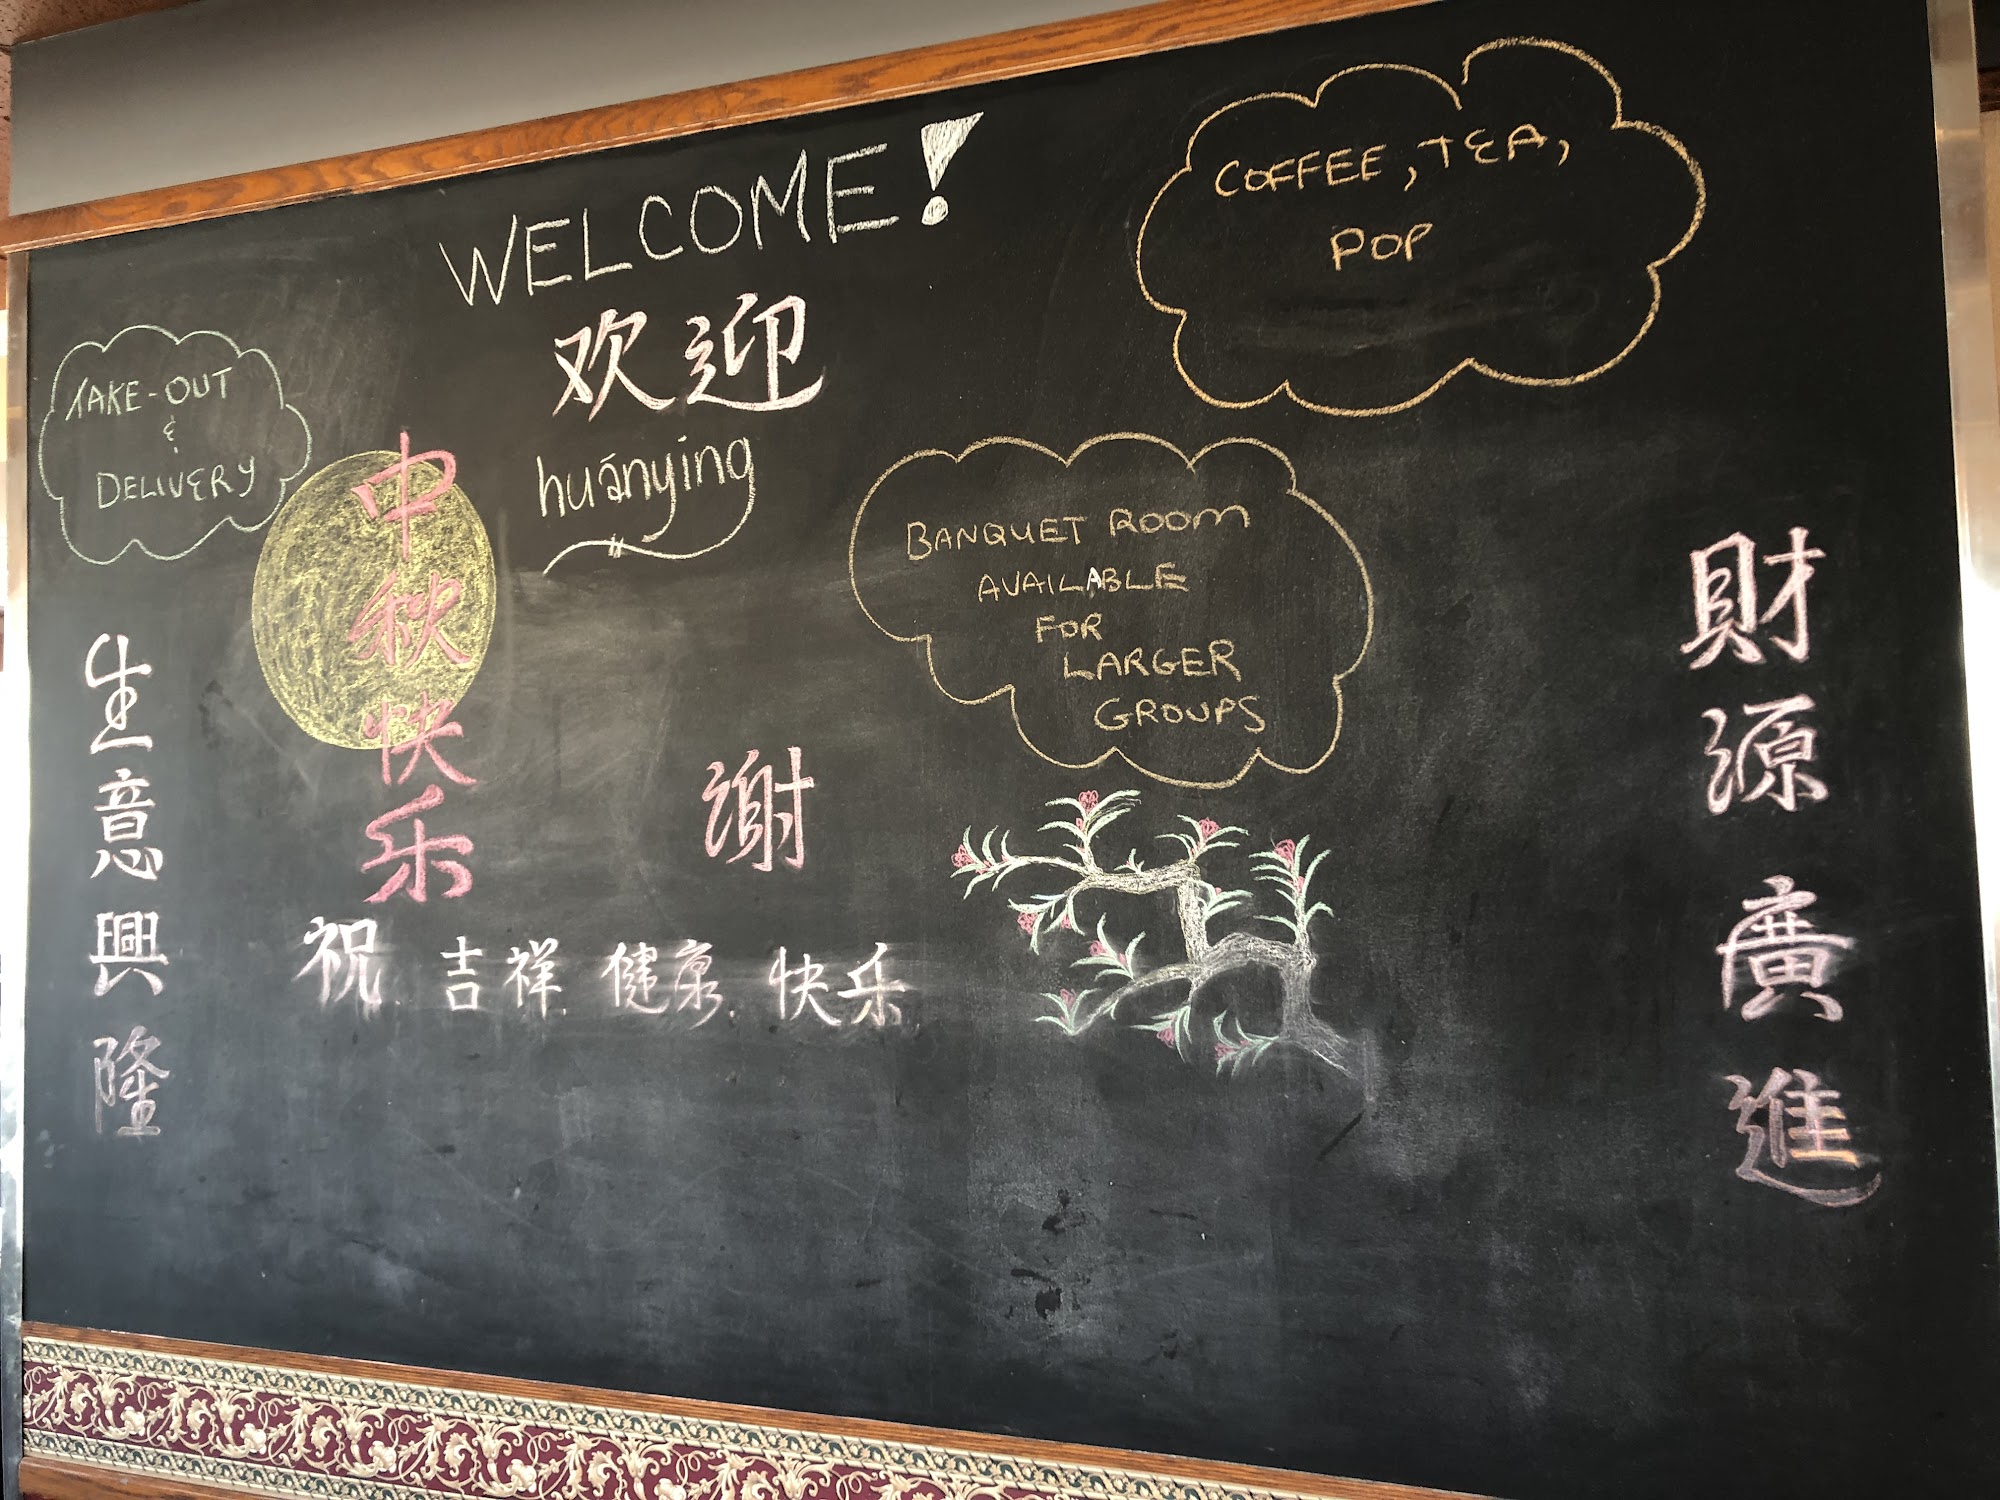 WELCOME!
欢迎
huānyíng
COFFEE, TEA,
POP
TAKE-OUT
&
DELIVERY
中秋快乐
BANQUET ROOM
AVAILABLE
FOR
LARGER
GROUPS
生意興隆
謝
祝 吉祥 健康 快乐
財源廣進